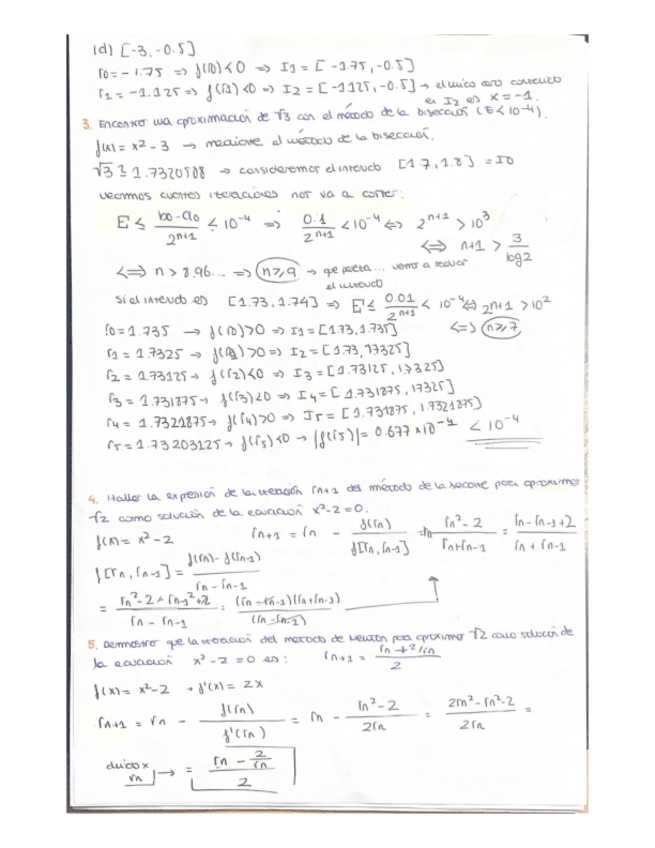 (d) [-3, -0.5]
r0 = -1.75 => f(r0) < 0 => I1 = [-1.75, -0.5]
r1 = -1.125 => f(r1) < 0 => I2 = [-1.125, -0.5] → el único cero contenido
en I2 es x = -1.
3. Encontrar una aproximación de √3 con el método de la bisección (E < 10^-4).
f(x) = x² - 3 → mediante el método de la bisección.
√3 ≅ 1.7320508 → consideremos el intervalo [1.7, 1.8] = I0
veamos cuantas iteraciones nos va a costar:
E ≤ (b0 - a0)/2^(n+1) ≤ 10^-4 => 0.1/2^(n+1) < 10^-4 <=> 2^(n+1) > 10^3
<=> n+1 > 3/log2
<=> n > 8.96... => n ≥ 9 → que pereza... vamos a reducir
el intervalo
Si el intervalo es [1.73, 1.74] => E ≤ 0.01/2^(n+1) < 10^-4 <=> 2^(n+1) > 10^2
<=> n ≥ 7
r0 = 1.735 → f(r0) > 0 => I1 = [1.73, 1.735]
r1 = 1.7325 → f(r1) > 0 => I2 = [1.73, 1.7325]
r2 = 1.73125 → f(r2) < 0 => I3 = [1.73125, 1.7325]
r3 = 1.731875 → f(r3) < 0 => I4 = [1.731875, 1.7325]
r4 = 1.7321875 → f(r4) > 0 => I5 = [1.731875, 1.7321875]
r5 = 1.73203125 → f(r5) < 0 → |f(r5)| = 0.677 × 10^-4 < 10^-4
4. Hallar la expresión de la iteración rn+1 del método de la secante para aproximar
√2 como solución de la ecuación x² - 2 = 0.
f(x) = x² - 2 rn+1 = rn - f(rn)/f[rn, rn-1] = rn - (rn² - 2)/(rn + rn-1) = (rn · rn-1 + 2)/(rn + rn-1)
f[rn, rn-1] = (f(rn) - f(rn-1))/(rn - rn-1)
= (rn² - 2 - rn-1² + 2)/(rn - rn-1) = ((rn - rn-1)(rn + rn-1))/(rn - rn-1)
5. Demostrar que la iteración del método de Newton para aproximar √2 como solución de
la ecuación x² - 2 = 0 es: rn+1 = (rn + 2/rn)/2
f(x) = x² - 2 → f'(x) = 2x
rn+1 = rn - f(rn)/f'(rn) = rn - (rn² - 2)/2rn = (2rn² - rn² - 2)/2rn =
divido x
rn → = (rn - 2/rn)/2